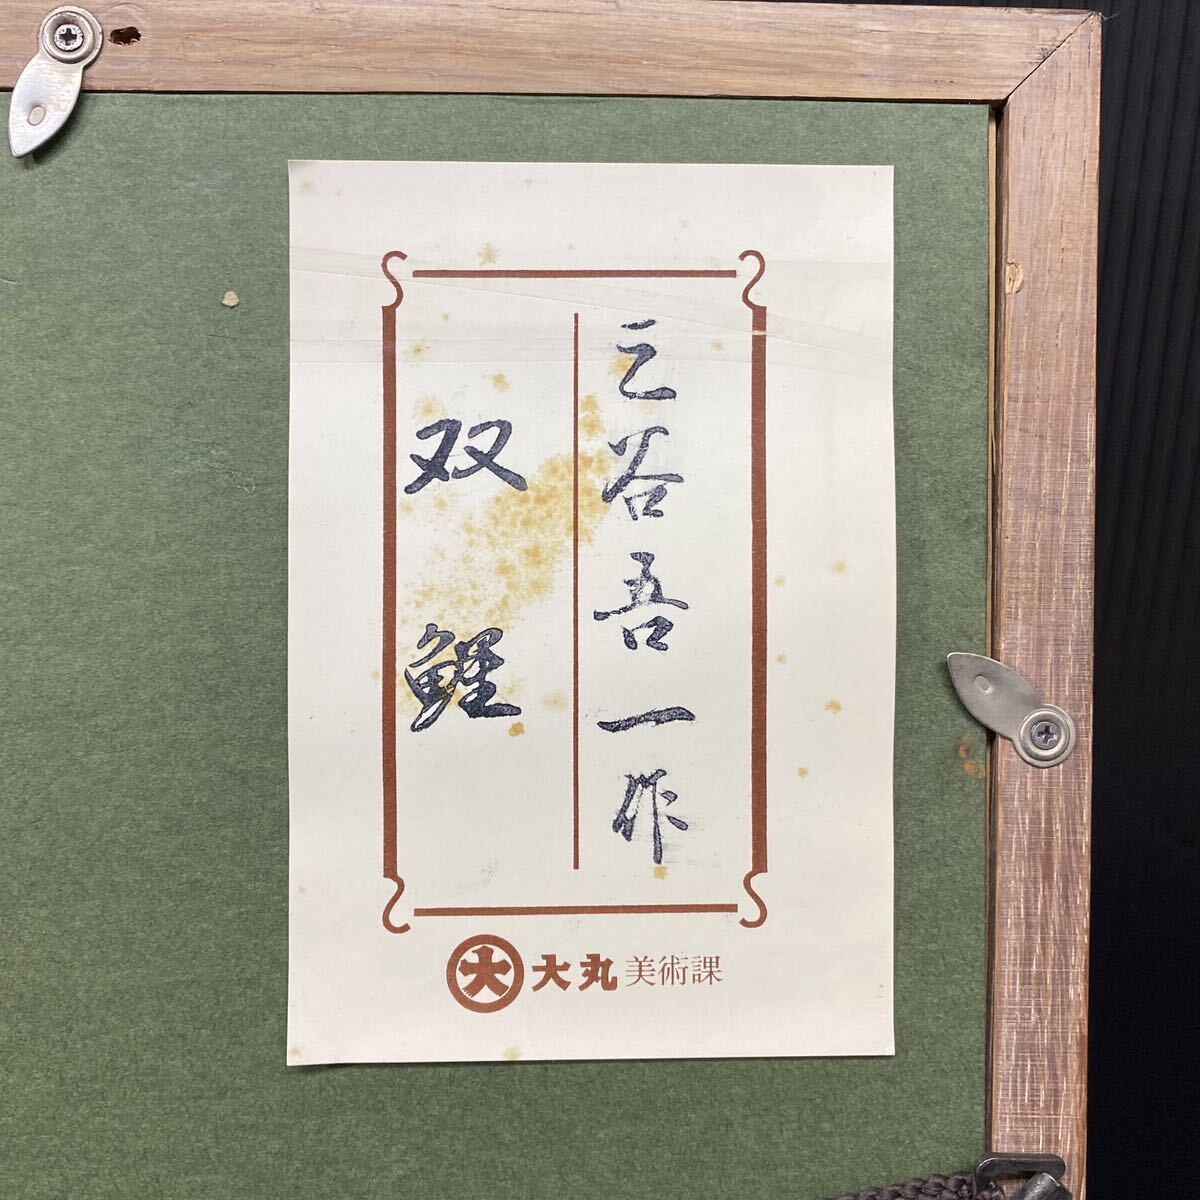 三谷吾一作
双鯉
大 大丸 美術課